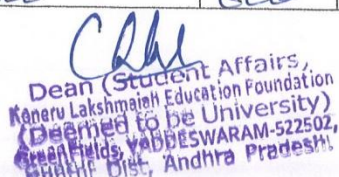 Dean (Student Affairs,
Koneru Lakshmaiah Education Foundation
(Deemed to be University)
Green Fields, VADDESWARAM-522502,
Dist, Andhra Pradesh.